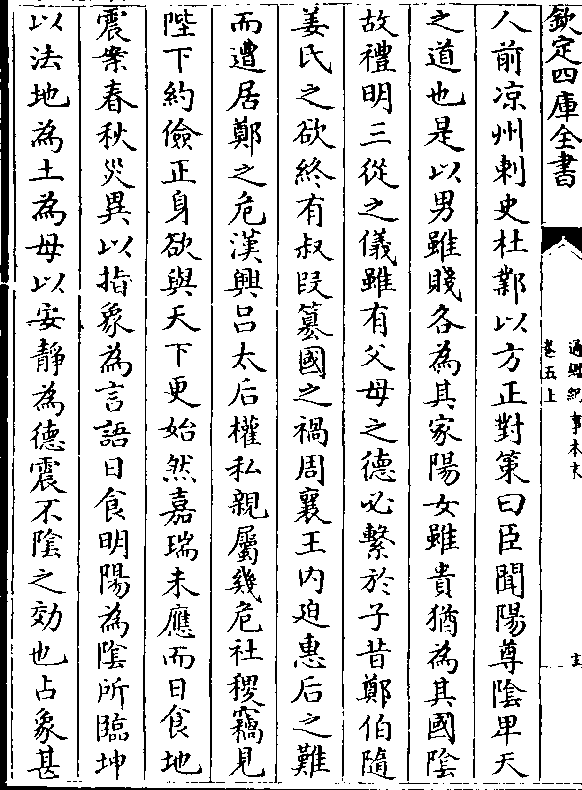 欽定四庫全書
通鑑紀事本末
卷五上
人前凉州刺史杜鄴以方正對策曰臣聞陽尊陰卑天
之道也是以男雖賤各為其家陽女雖貴猶為其國陰
故禮明三從之儀雖有父母之德必繫於子昔鄭伯隨
姜氏之欲終有叔段簒國之禍周襄王内迫惠后之難
而遭居鄭之危漢興吕太后權私親屬幾危社稷竊見
陛下約儉正身欲與天下更始然嘉瑞未應而日食地
震案春秋災異以指象為言語日食明陽為陰所臨坤
以法地為土為母以安靜為德震不陰之効也占象甚